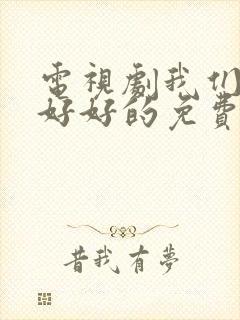 電視劇我们
好好的免費
昔我有夢